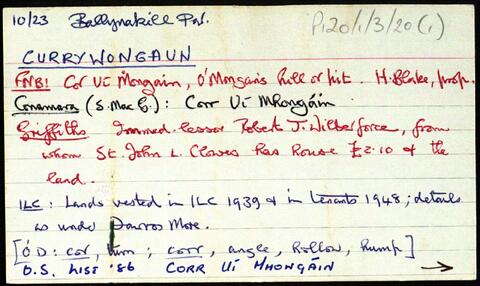 10/23 Ballynakill Par. P120/1/3/20(1)
CURRYWONGAUN
FNB: Cor Uí Mongain, O'Mongan's hill or pit. H. Blake, prop.
Conamara (S. Mac G.): Corr Uí Mhongáin
Griffiths Immed. lessor Robert J. Wilberforce, from
whom St. John L. Clowes has house £2.10 & the
land.
ILC: Lands vested in ILC 1939 & in tenants 1948; details
as under Dawros More.
[Ó D: cor, turn; corr, angle, hollow, hump]
O.S. LISE '86 CORR UÍ MHONGÁIN →